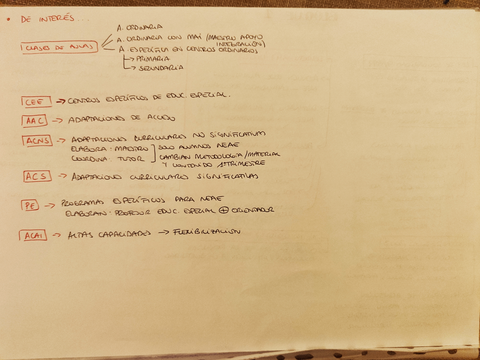 • DE INTERÉS...
A. ORDINARIA
CLASES DE AULAS
A. ORDINARIA CON MAI (MAESTRO APOYO
INTEGRACIÓN)
A. ESPECÍFICA EN CENTROS ORDINARIOS
→ PRIMARIA
→ SECUNDARIA
CEE → CENTROS ESPECÍFICOS DE EDUC. ESPECIAL.
AAC → ADAPTACIONES DE ACCESO
ACNS → ADAPTACIONES CURRICULARES NO SIGNIFICATIVAS
ELABORA: MAESTRO SOLO ALUMNOS NEAE
COORDINA: TUTOR CAMBIAN METODOLOGÍA/MATERIAL
Y CONTENIDO 1 TRIMESTRE
ACS → ADAPTACIONES CURRICULARES SIGNIFICATIVAS
PE → PROGRAMAS ESPECÍFICOS PARA NEAE
ELABORAN: PROFESOR EDUC. ESPECIAL + ORIENTADOR
ACAI → ALTAS CAPACIDADES → FLEXIBILIZACIÓN